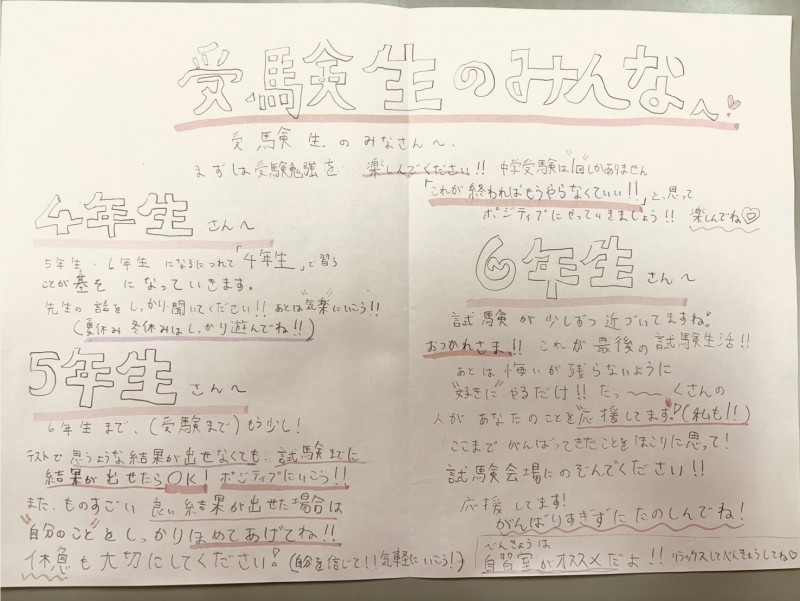 受験生のみんなへ
受験生のみなさんへ.
まずは受験勉強を 楽しんでください!! 中学受験は"1回"しかありません
「これが終わればもうやらなくていい!!」と、思って
ポジティブにやっていきましょう!! 楽しんでね♡
4年生さんへ
5年生・6年生になるにつれて「4年生」で習う
ことが基そになっていきます。
先生の話をしっかり聞いてください!! あとは"気楽"にいこう!!
(夏休み 冬休みはしっかり遊んでね!!)
5年生さんへ
6年生まで、(受験まで)もう少し!
テストで思うような結果が出せなくても、試験までに
結果が出せたらOK! ポジティブにいこう!!
また、ものすごい良い結果が出せた場合は
"自分のこと"をしっかりほめてあげてね!!
休急も大切にしてください! (自分を信じて!!気軽にいこう!)
6年生さんへ
試験が少しずつ近づいてますね。
おつかれさま!! これが最後の試験生活!!
あとは悔いが残らないように
"好きに"やるだけ!! たっ〜〜くさんの
人があなたのことを"応援してます"!(私も!!)
ここまでがんばってきたことをほこりに思って!
試験会場にのぞんでください!!
応援してます!
がんばりすぎずにたのしんでね!
べんきょうは
自習室がオススメだよ!! リラックスしてべんきょうしてね♡